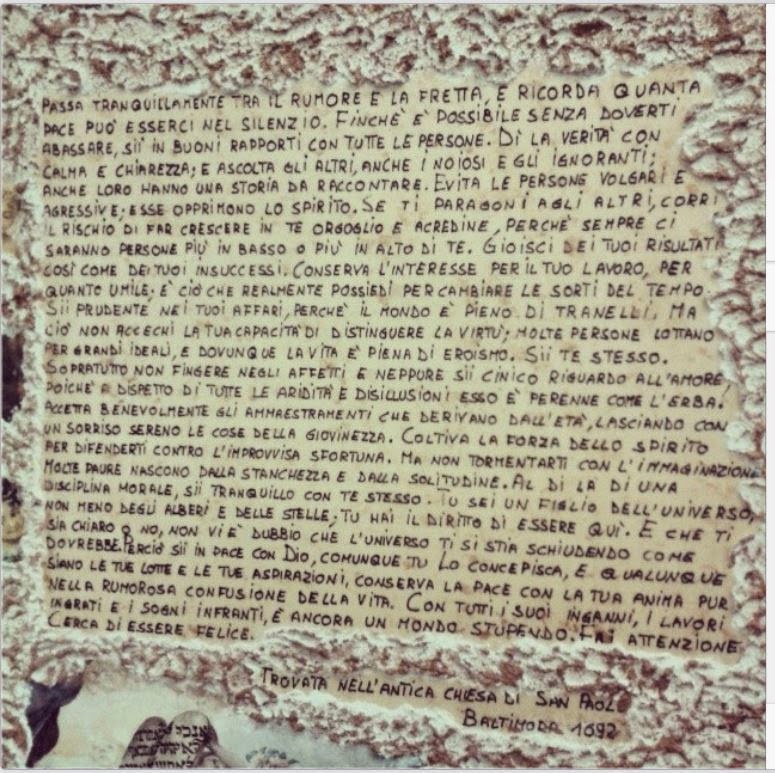 PASSA TRANQUILLAMENTE TRA IL RUMORE E LA FRETTA, E RICORDA QUANTA
PACE PUÒ ESSERCI NEL SILENZIO. FINCHÈ È POSSIBILE SENZA DOVERTI
ABASSARE, SII IN BUONI RAPPORTI CON TUTTE LE PERSONE. DÌ LA VERITÀ CON
CALMA E CHIAREZZA; E ASCOLTA GLI ALTRI, ANCHE I NOIOSI E GLI IGNORANTI;
ANCHE LORO HANNO UNA STORIA DA RACCONTARE. EVITA LE PERSONE VOLGARI E
AGRESSIVE; ESSE OPPRIMONO LO SPIRITO. SE TI PARAGONI AGLI ALTRI, CORRI
IL RISCHIO DI FAR CRESCERE IN TE ORGOGLIO E ACREDINE, PERCHÈ SEMPRE CI
SARANNO PERSONE PIÙ IN BASSO O PIÙ IN ALTO DI TE. GIOISCI DEI TUOI RISULTATI
COSÌ COME DEI TUOI INSUCCESSI. CONSERVA L'INTERESSE PER IL TUO LAVORO, PER
QUANTO UMILE; È CIÒ CHE REALMENTE POSSIEDI PER CAMBIARE LE SORTI DEL TEMPO.
SII PRUDENTE NEI TUOI AFFARI, PERCHÈ IL MONDO È PIENO DI TRANELLI, MA
CIÒ NON ACCECHI LA TUA CAPACITÀ DI DISTINGUERE LA VIRTÙ; MOLTE PERSONE LOTTANO
PER GRANDI IDEALI, E DOVUNQUE LA VITA È PIENA DI EROISMO. SII TE STESSO.
SOPRATUTTO NON FINGERE NEGLI AFFETTI E NEPPURE SII CINICO RIGUARDO ALL'AMORE,
POICHÈ A DISPETTO DI TUTTE LE ARIDITÀ E DISILLUSIONI ESSO È PERENNE COME L'ERBA.
ACCETTA BENEVOLMENTE GLI AMMAESTRAMENTI CHE DERIVANO DALL'ETÀ, LASCIANDO CON
UN SORRISO SERENO LE COSE DELLA GIOVINEZZA. COLTIVA LA FORZA DELLO SPIRITO
PER DIFENDERTI CONTRO L'IMPROVVISA SFORTUNA. MA NON TORMENTARTI CON L'IMMAGINAZIONE
MOLTE PAURE NASCONO DALLA STANCHEZZA E DALLA SOLITUDINE. AL DI LÀ DI UNA
DISCIPLINA MORALE, SII TRANQUILLO CON TE STESSO. TU SEI UN FIGLIO DELL'UNIVERSO,
NON MENO DEGLI ALBERI E DELLE STELLE; TU HAI IL DIRITTO DI ESSERE QUÌ. E CHE TI
SIA CHIARO O NO, NON VI È DUBBIO CHE L'UNIVERSO TI SI STIA SCHIUDENDO COME
DOVREBBE. PERCIÒ SII IN PACE CON DIO, COMUNQUE TU LO CONCEPISCA, E QUALUNQUE
SIANO LE TUE LOTTE E LE TUE ASPIRAZIONI, CONSERVA LA PACE CON LA TUA ANIMA PUR
NELLA RUMOROSA CONFUSIONE DELLA VITA. CON TUTTI I SUOI INGANNI, I LAVORI
INGRATI E I SOGNI INFRANTI, È ANCORA UN MONDO STUPENDO. FAI ATTENZIONE
CERCA DI ESSERE FELICE.
TROVATA NELL'ANTICA CHIESA DI SAN PAOLO
BALTIMORA 1692
אנכי